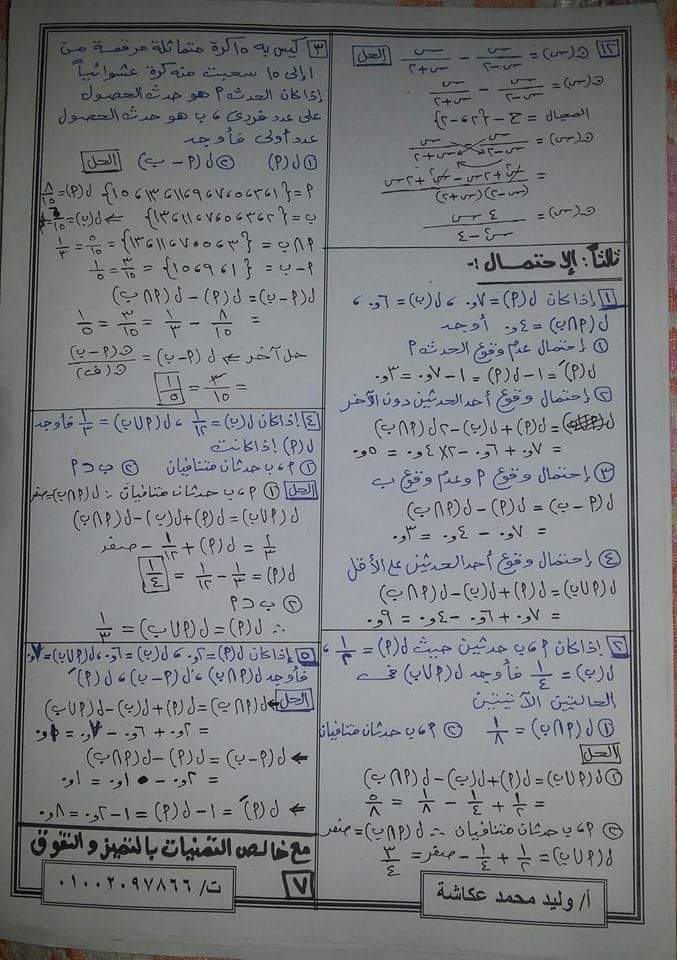 ١٢ ن(س) = س/(س-٢) - س/(س+٢) الحل
ن(س) = س/(س-٢) - س/(س+٢)
المجال = ح - {٢، -٢}
ن(س) = س/(س-٢) س/(س+٢)
= (س٢ + ٢س - س٢ + ٢س)/((س-٢)(س+٢))
ن(س) = ٤س/(س٢-٤)
ثالثاً : الإحتمال :-
١ إذا كان ل(P) = ٠,٧ ، ل(ب) = ٠,٦ ،
ل(P∩ب) = ٠,٤ أوجد
① إحتمال عدم وقوع الحدث P
ل(Ṕ) = ١ - ل(P) = ١ - ٠,٧ = ٠,٣
② إحتمال وقوع أحد الحدثين دون الآخر
= ل(P) + ل(ب) - ٢ل(P∩ب)
= ٠,٧ + ٠,٦ - ٢×٠,٤ = ٠,٥
③ إحتمال وقوع P وعدم وقوع ب
ل(P - ب) = ل(P) - ل(P∩ب)
= ٠,٧ - ٠,٤ = ٠,٣
④ إحتمال وقوع أحد الحدثين على الأقل
ل(P∪ب) = ل(P) + ل(ب) - ل(P∩ب)
= ٠,٧ + ٠,٦ - ٠,٤ = ٠,٩
٢ إذا كان P ، ب حدثين حيث ل(P) = ١/٢ ،
ل(ب) = ١/٤ فأوجد ل(P∪ب) في
الحالتين الآتيتين
① ل(P∩ب) = ١/٨ ② P ، ب حدثان متنافيان
الحل
① ل(P∪ب) = ل(P) + ل(ب) - ل(P∩ب)
= ١/٢ + ١/٤ - ١/٨ = ٥/٨
② P ، ب حدثان متنافيان ∴ ل(P∩ب) = صفر
ل(P∪ب) = ١/٢ + ١/٤ - صفر = ٣/٤
أ/ وليد محمد عكاشة
٣ كيس به ١٥ كرة متماثلة مرقمة من
١ إلى ١٥ سحبت منه كرة عشوائياً
إذا كان الحدث P هو حدث الحصول
على عدد فردى ، ب هو حدث الحصول
عدد أولى فأوجد
① ل(P) ② ل(P - ب) الحل
P = {١، ٣، ٥، ٧، ٩، ١١، ١٣، ١٥} ل(P) = ٨/١٥
ب = {٢، ٣، ٥، ٧، ١١، ١٣} ← ل(ب) = ٦/١٥
P∩ب = {٣، ٥، ٧، ١١، ١٣} = ٥/١٥ = ١/٣
P - ب = {١، ٩، ١٥} = ٣/١٥ = ١/٥
ل(P - ب) = ل(P) - ل(P∩ب)
= ٨/١٥ - ١/٣ = ٣/١٥ = ١/٥
حل آخر ← ل(P - ب) = ن(P - ب)/ن(ف)
= ٣/١٥ = ١/٥
٤ إذا كان ل(ب) = ١/١٢ ، ل(P∪ب) = ١/٣ فأوجد
ل(P) إذا كانت
① P ، ب حدثان متنافيان ② ب ⊂ P
الحل ① P ، ب حدثان متنافيان ∴ ل(P∩ب) = صفر
ل(P∪ب) = ل(P) + ل(ب) - ل(P∩ب)
١/٣ = ل(P) + ١/١٢ - صفر
ل(P) = ١/٣ - ١/١٢ = ١/٤
② ب ⊂ P
∴ ل(P) = ل(P∪ب) = ١/٣
٥ إذا كان ل(P) = ٠,٢ ، ل(ب) = ٠,٦ ، ل(P∪ب) = ٠,٧
فأوجد ل(P∩ب) ، ل(P - ب) ، ل(Ṕ)
الحل ← ل(P∩ب) = ل(P) + ل(ب) - ل(P∪ب)
= ٠,٢ + ٠,٦ - ٠,٧ = ٠,١
← ل(P - ب) = ل(P) - ل(P∩ب)
= ٠,٢ - ٠,١ = ٠,١
← ل(Ṕ) = ١ - ل(P) = ١ - ٠,٢ = ٠,٨
مع خالص التمنيات بالتميز والتفوق
٧
ت/ ٠١٠٠٢٠٩٧٨٦٦